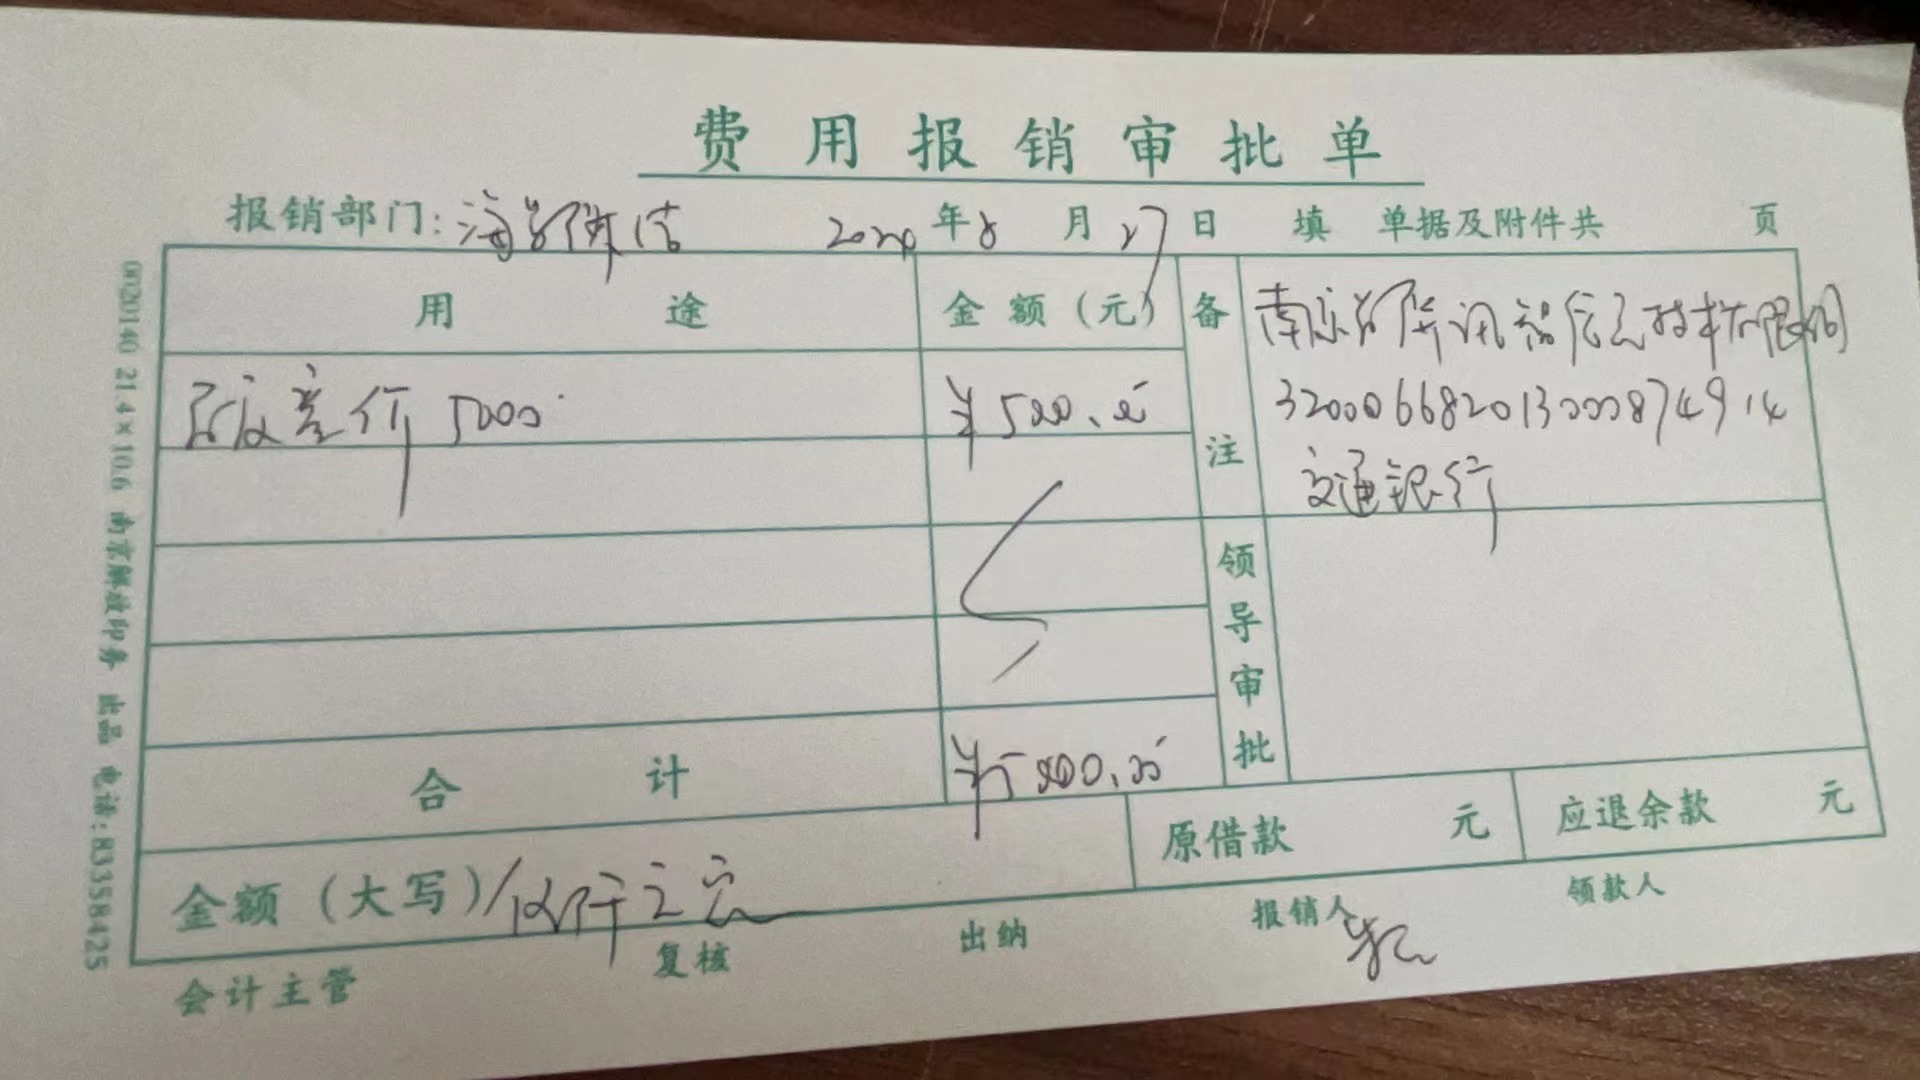 费用报销审批单
报销部门: 2024年8月27日 填 单据及附件共 页
用途 金额(元) 备注
差价 5000 ¥5000.00
南京 信息技术有限公司
交通银行
领导审批
合计 ¥5000.00
金额(大写) 伍仟元 原借款 元 应退余款 元
会计主管 复核 出纳 报销人 领款人
0020140 21.4×10.6 南京解放印务 出品 电话:83358425